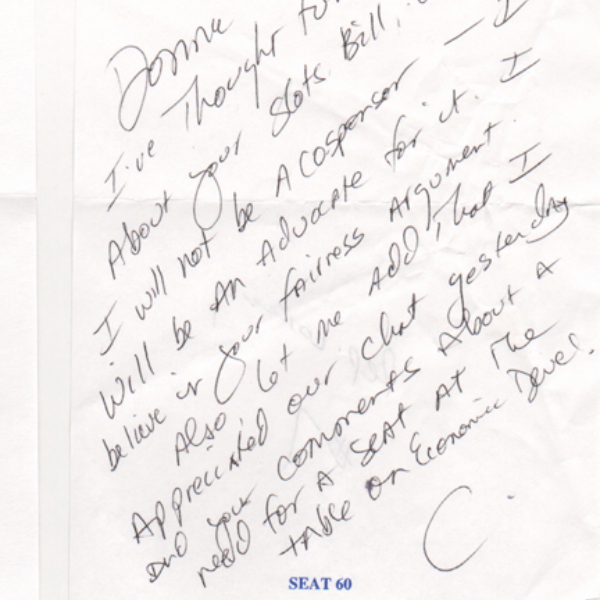 Donna
I've Thought
About your Slots Bill,
I will not be A cosponsor — I
Will be an Advocate for it. I
believe in your fairness Argument.
Also, let me add that I
Appreciated our chat yesterday
and your comments About a
need for a seat at the
table on Economic Devel.
C.
SEAT 60